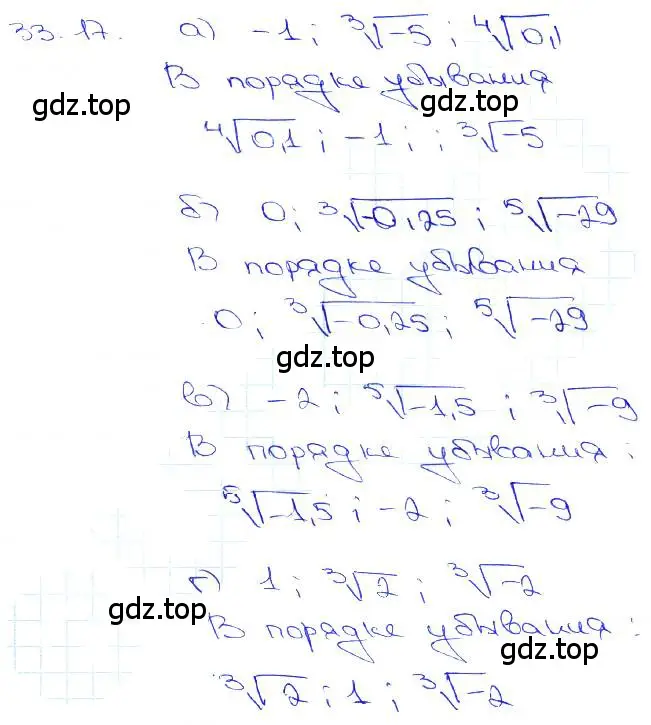 33.17. а) -1; ∛-5; ∜0,1
В порядке убывания
gdz.top
∜0,1; -1; ; ∛-5
б) 0; ∛-0,25; ⁵√-29
В порядке убывания
0; ∛-0,25; ⁵√-29
gdz.top
в) -2; ⁵√-1,5; ∛-9
В порядке убывания:
⁵√-1,5; -2; ∛-9
г) 1; ∛2; ∛-2
gdz.top
В порядке убывания:
gdz.top
∛2; 1; ∛-2